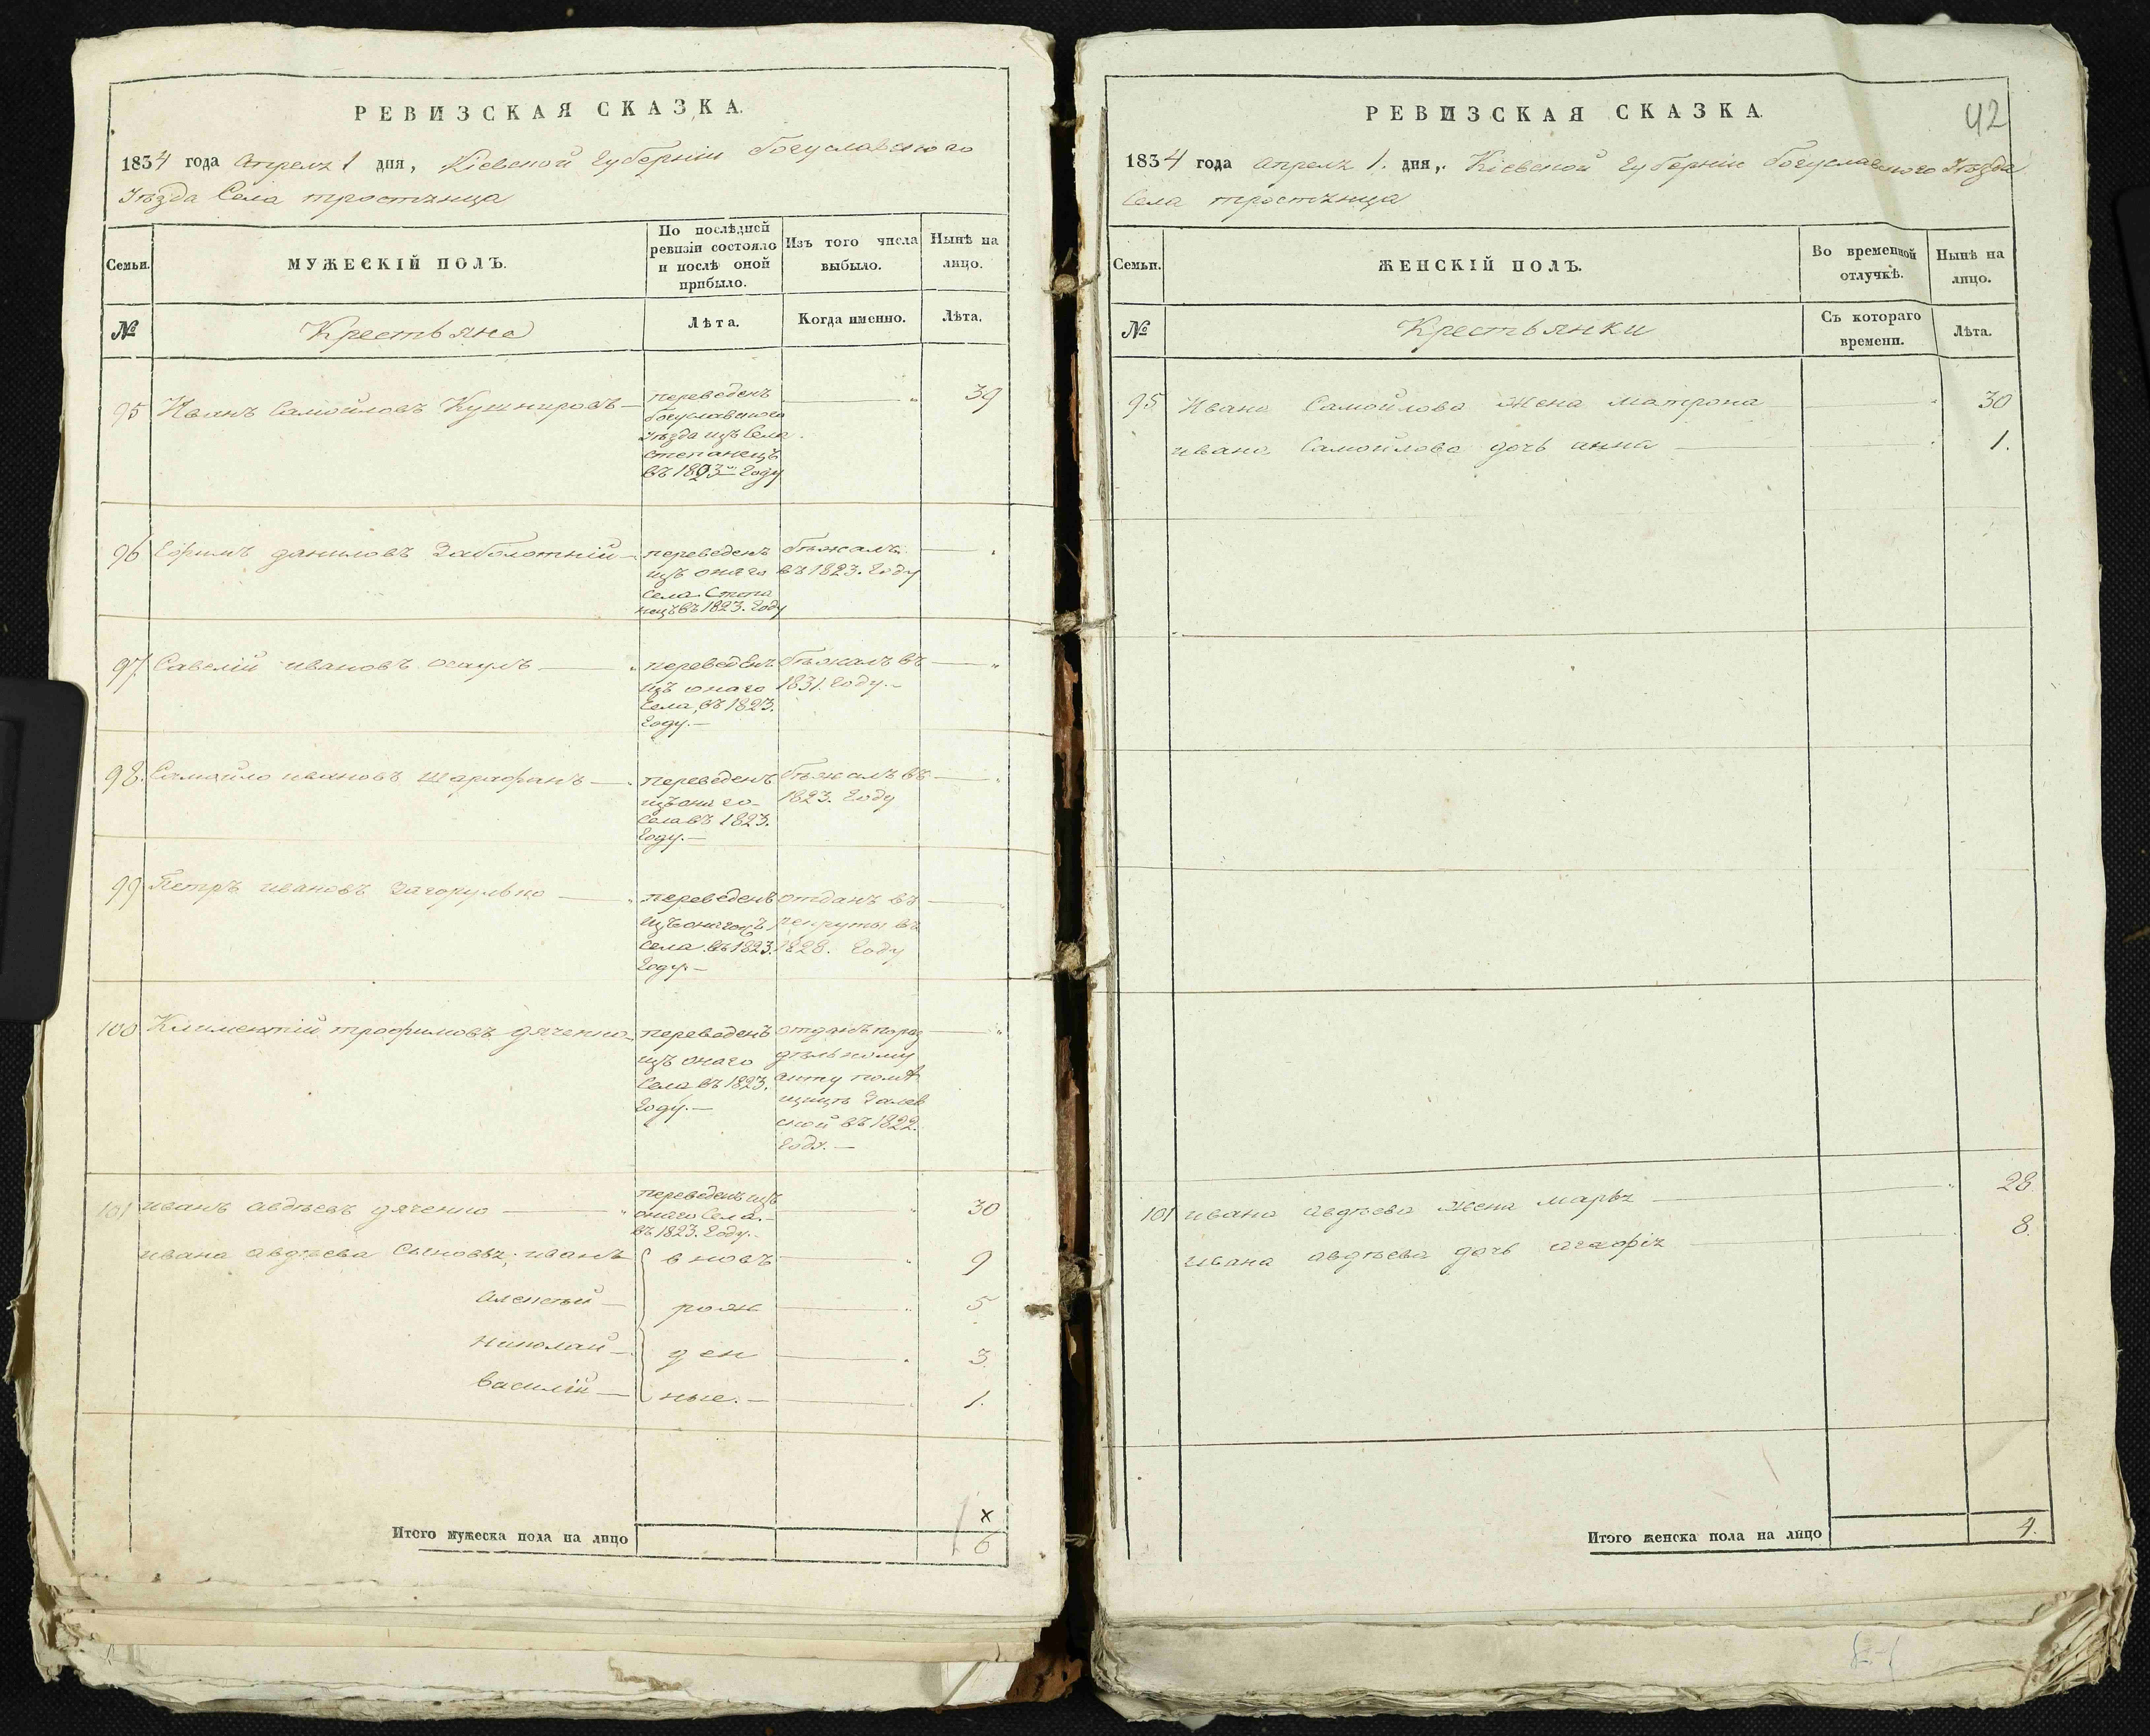 РЕВИЗСКАЯ СКАЗКА.
1834 года Апреля 1 дня, Кіевской Губерніи Богуславского
Уѣзда Села тростянца
Семьи.
МУЖЕСКІЙ ПОЛЪ.
По послѣдней
ревизіи состояло
и послѣ оной
прибыло.
Изъ того числа
выбыло.
Нынѣ на
лицо.
№
Крестьяне
Лѣта.
Когда именно.
Лѣта.
95 Иванъ Самойловъ Кушнировъ — переведенъ 39
Богуславского
Уѣзда изъ Села
степанецъ
въ 1823м Году
96 Ефимъ даниловъ Заболотній — переведенъ бѣжалъ
изъ онаго въ 1823. Году
села Степа
нецъ въ 1823. Году
97. Савелій ивановъ осаулъ — переведенъ бѣжалъ въ
изъ онаго 1831. Году. —
Села, въ 1823.
Году. —
98. Самойло ивановъ шарафанъ — переведенъ бѣжалъ въ
изъ онаго 1823. Году
Села въ 1823.
Году. —
99 Петръ ивановъ загорулько — переведенъ отданъ въ
рекруты въ
села въ 1823. 1828. Году
Году. —
100 Климентій трофимовъ дяченко — переведенъ отданъ по раз
изъ онаго дѣльному
Села въ 1823. акту помѣ
Году. — щицѣ Залев
ской въ 1822.
Году. —
101 иванъ авдѣевъ дяченко — переведенъ изъ 30
онаго Села. —
въ 1823. Году. —
ивана авдѣева Сыновья, иванъ вновь 9
алексѣй — рож 5
николай — ден 3.
василій — ные. — 1.
Итого мужеска пола на лицо
x
6
РЕВИЗСКАЯ СКАЗКА
42
1834 года Апреля 1. дня, Кіевской Губерніи Богуславского Уѣзда
Села тростянца
Семьи.
ЖЕНСКІЙ ПОЛЪ.
Во временной
отлучкѣ.
Нынѣ на
лицо.
№
Крестьянки
Съ котораго
времени.
Лѣта.
95 Ивана Самойлова жена матрона 30
ивана Самойлова дочь анна — 1.
101 ивана авдѣева жена марья — 28
ивана авдѣева дочь агафія — 8.
Итого женска пола на лицо 4.